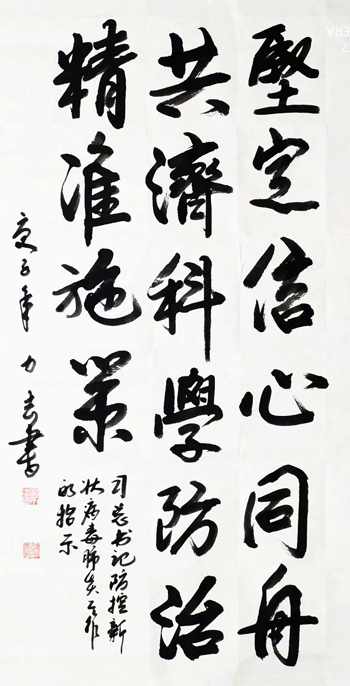 堅定信心同舟
共濟科學防治
精准施策
习总书记防控新
状病毒肺炎工作
的指示
庚子年力言書